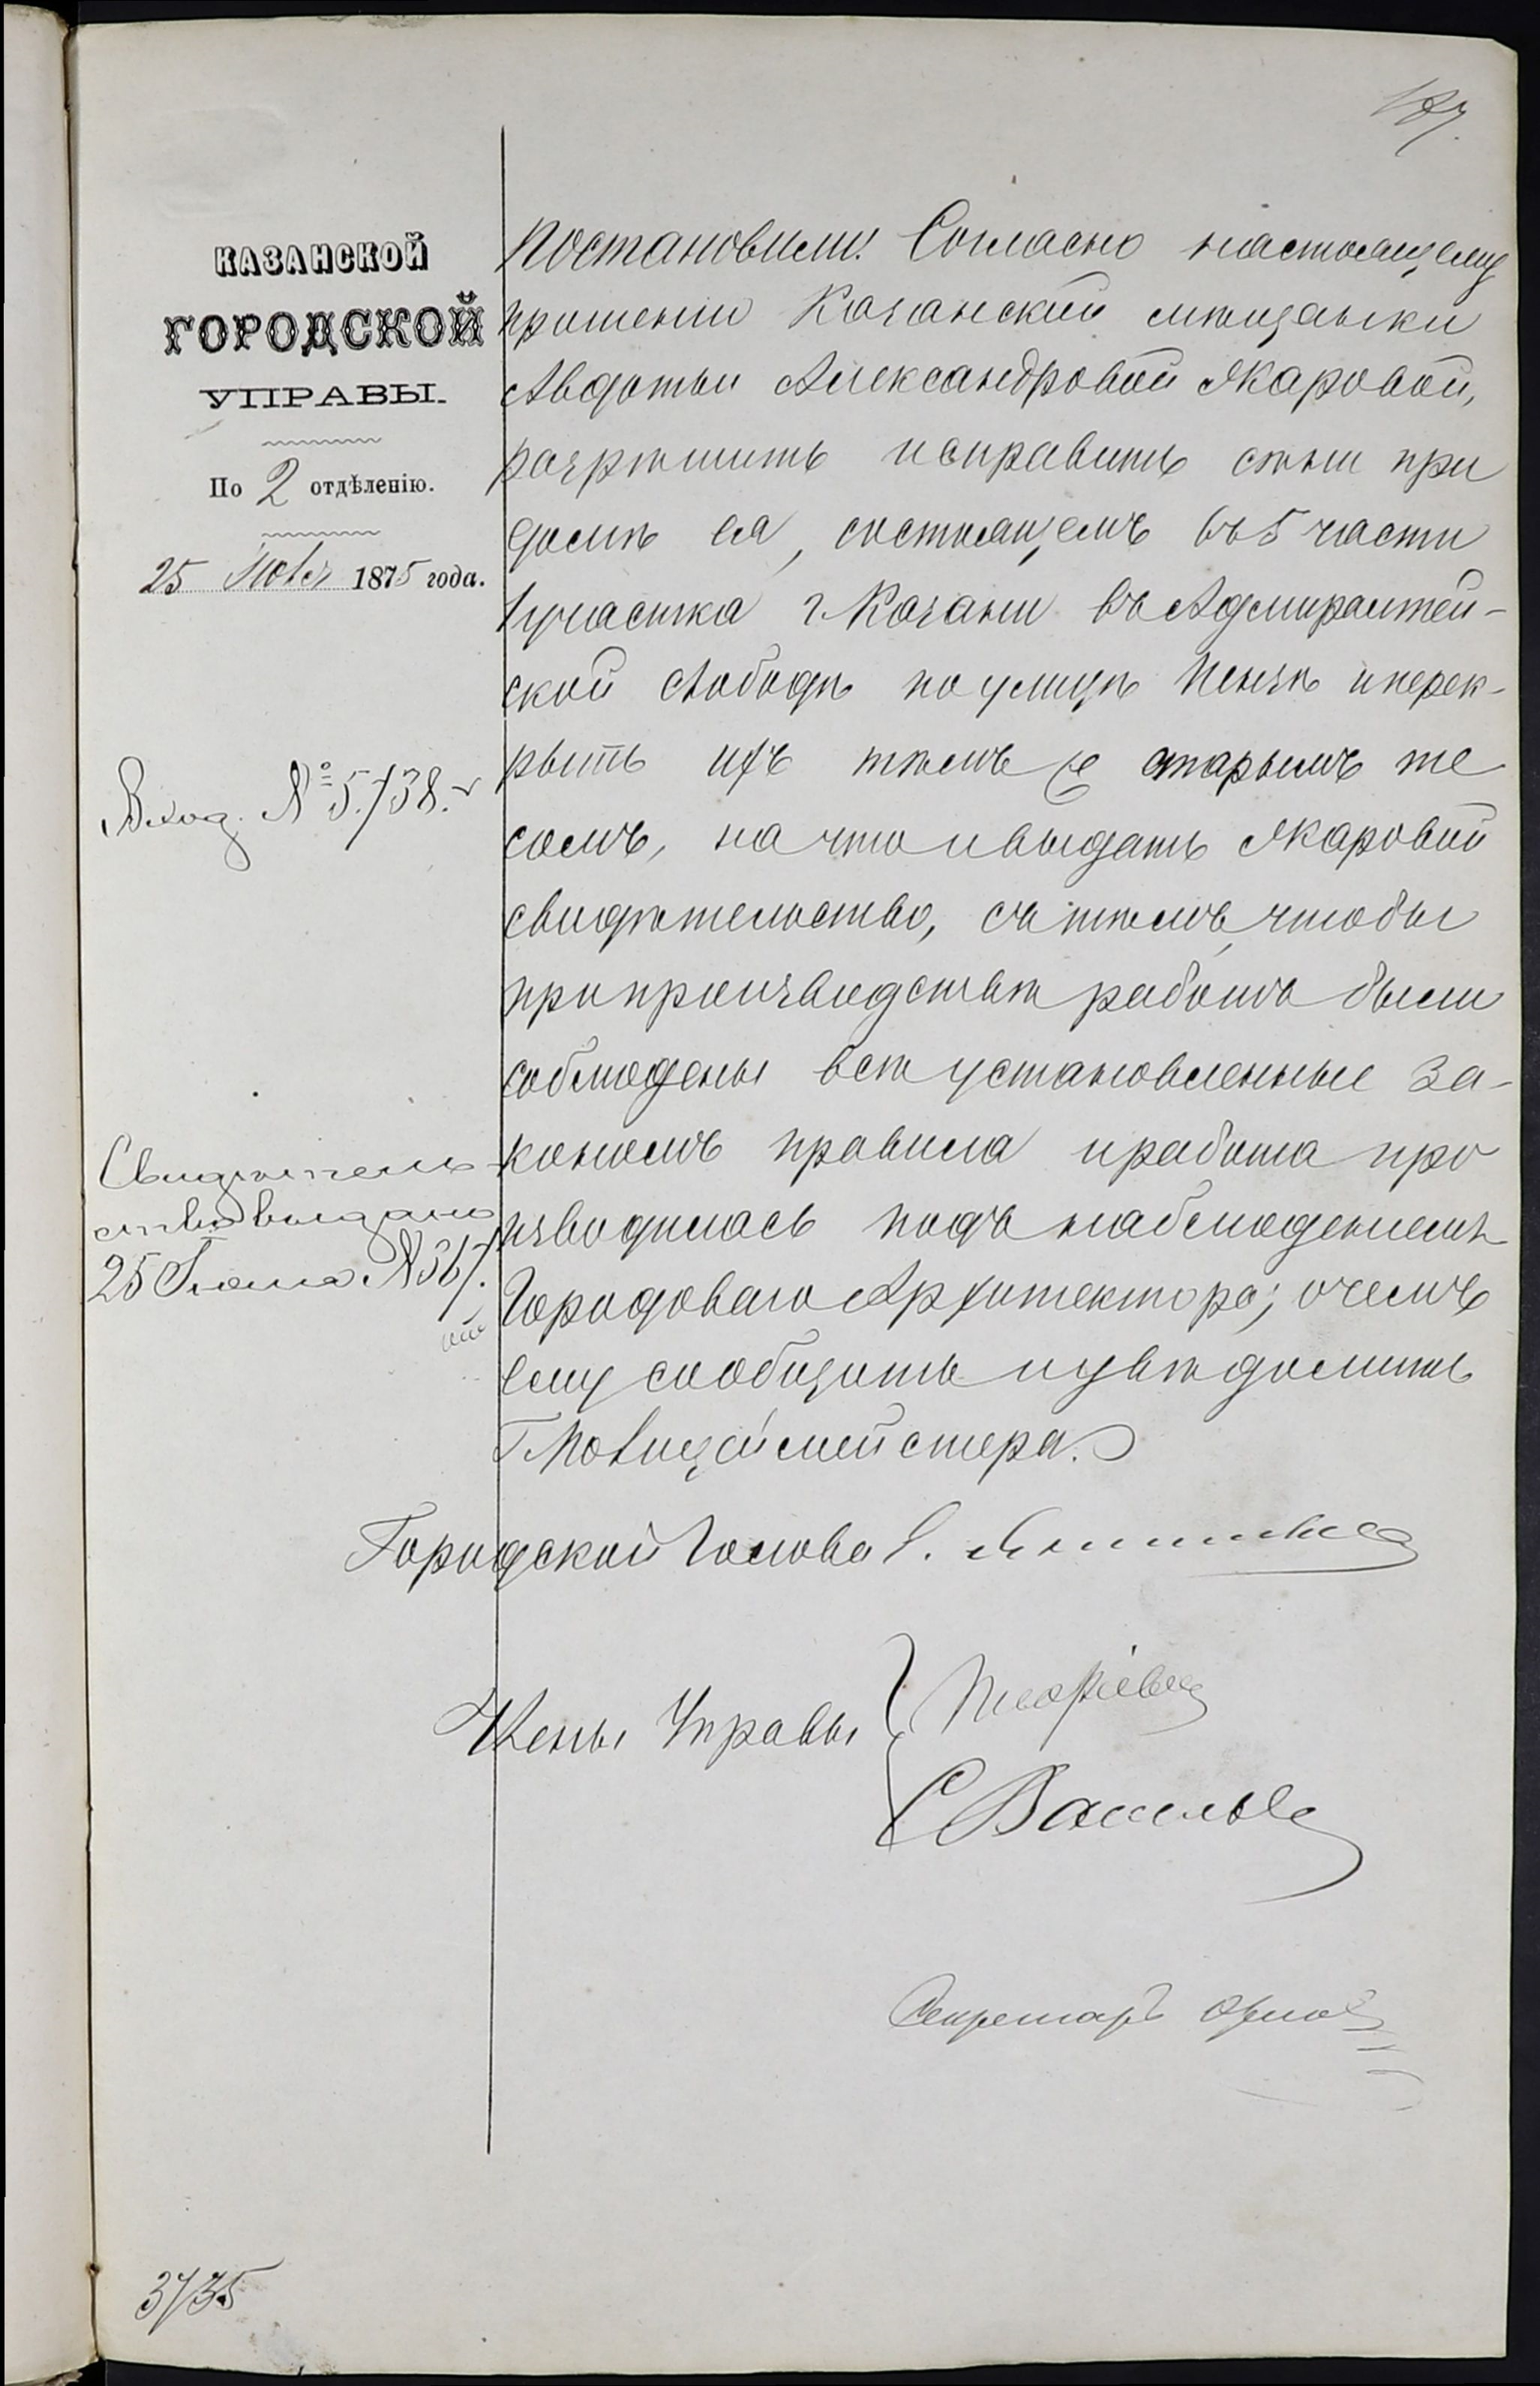 127.
КАЗАНСКОЙ
ГОРОДСКОЙ
УПРАВЫ.
По 2 отдѣленію.
25 Іюля 1875 года.
Вход. № 5738.
Свидѣтель
ство выдано
25 Іюля № 367.
Постановили: Согласно настоящему
прошенію Казанской мѣщанки
Авдотьи Александровой Макаровой,
разрѣшить исправить сѣни при
домѣ ея, состоящемъ въ 5 части
1 участка г. Казани въ Адмиралтей-
ской слободѣ по улицѣ Пензѣ и перек-
рыть ихъ тѣмъ же старымъ те
сомъ, на что и выдать Макаровой
свидѣтельство, съ тѣмъ, чтобы
при производствѣ работъ были
соблюдены всѣ установленные за-
кономъ правила и работа про
изводилась подъ наблюденіемъ
Городоваго Архитектора; о чемъ
ему сообщить и увѣдомить
Г. Полицiймейстера.
Городской Голова
Члены Управы
С Васильев
Секретарь Орлов
3735